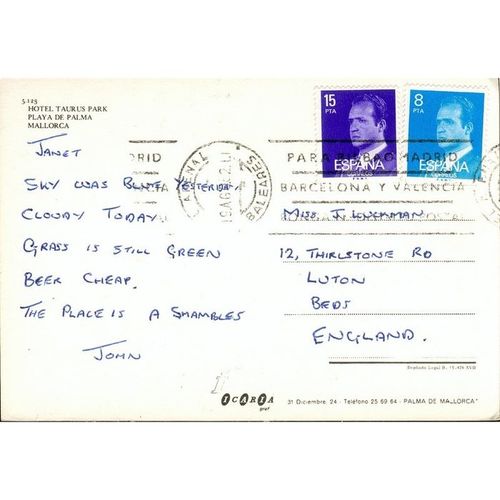 5-125
HOTEL TAURUS PARK
PLAYA DE PALMA
MALLORCA
JANET
SKY WAS BLUE YESTERDAY
CLOUDY TODAY
GRASS IS STILL GREEN
BEER CHEAP.
THE PLACE IS A SHAMBLES
JOHN
15
PTA
ESPAÑA
8
PTA
ESPAÑA
ARENAL
BALEARES
PARA BILBAO MADRID
BARCELONA Y VALENCIA
MISS. J. LUCKMAN
12, THIRLSTONE RD
LUTON
BEDS
ENGLAND.
Depósito Legal B. 15.426 XVII
ICARIA
graf
31 Diciembre, 24 - Teléfono 25 69 64 - PALMA DE MALLORCA